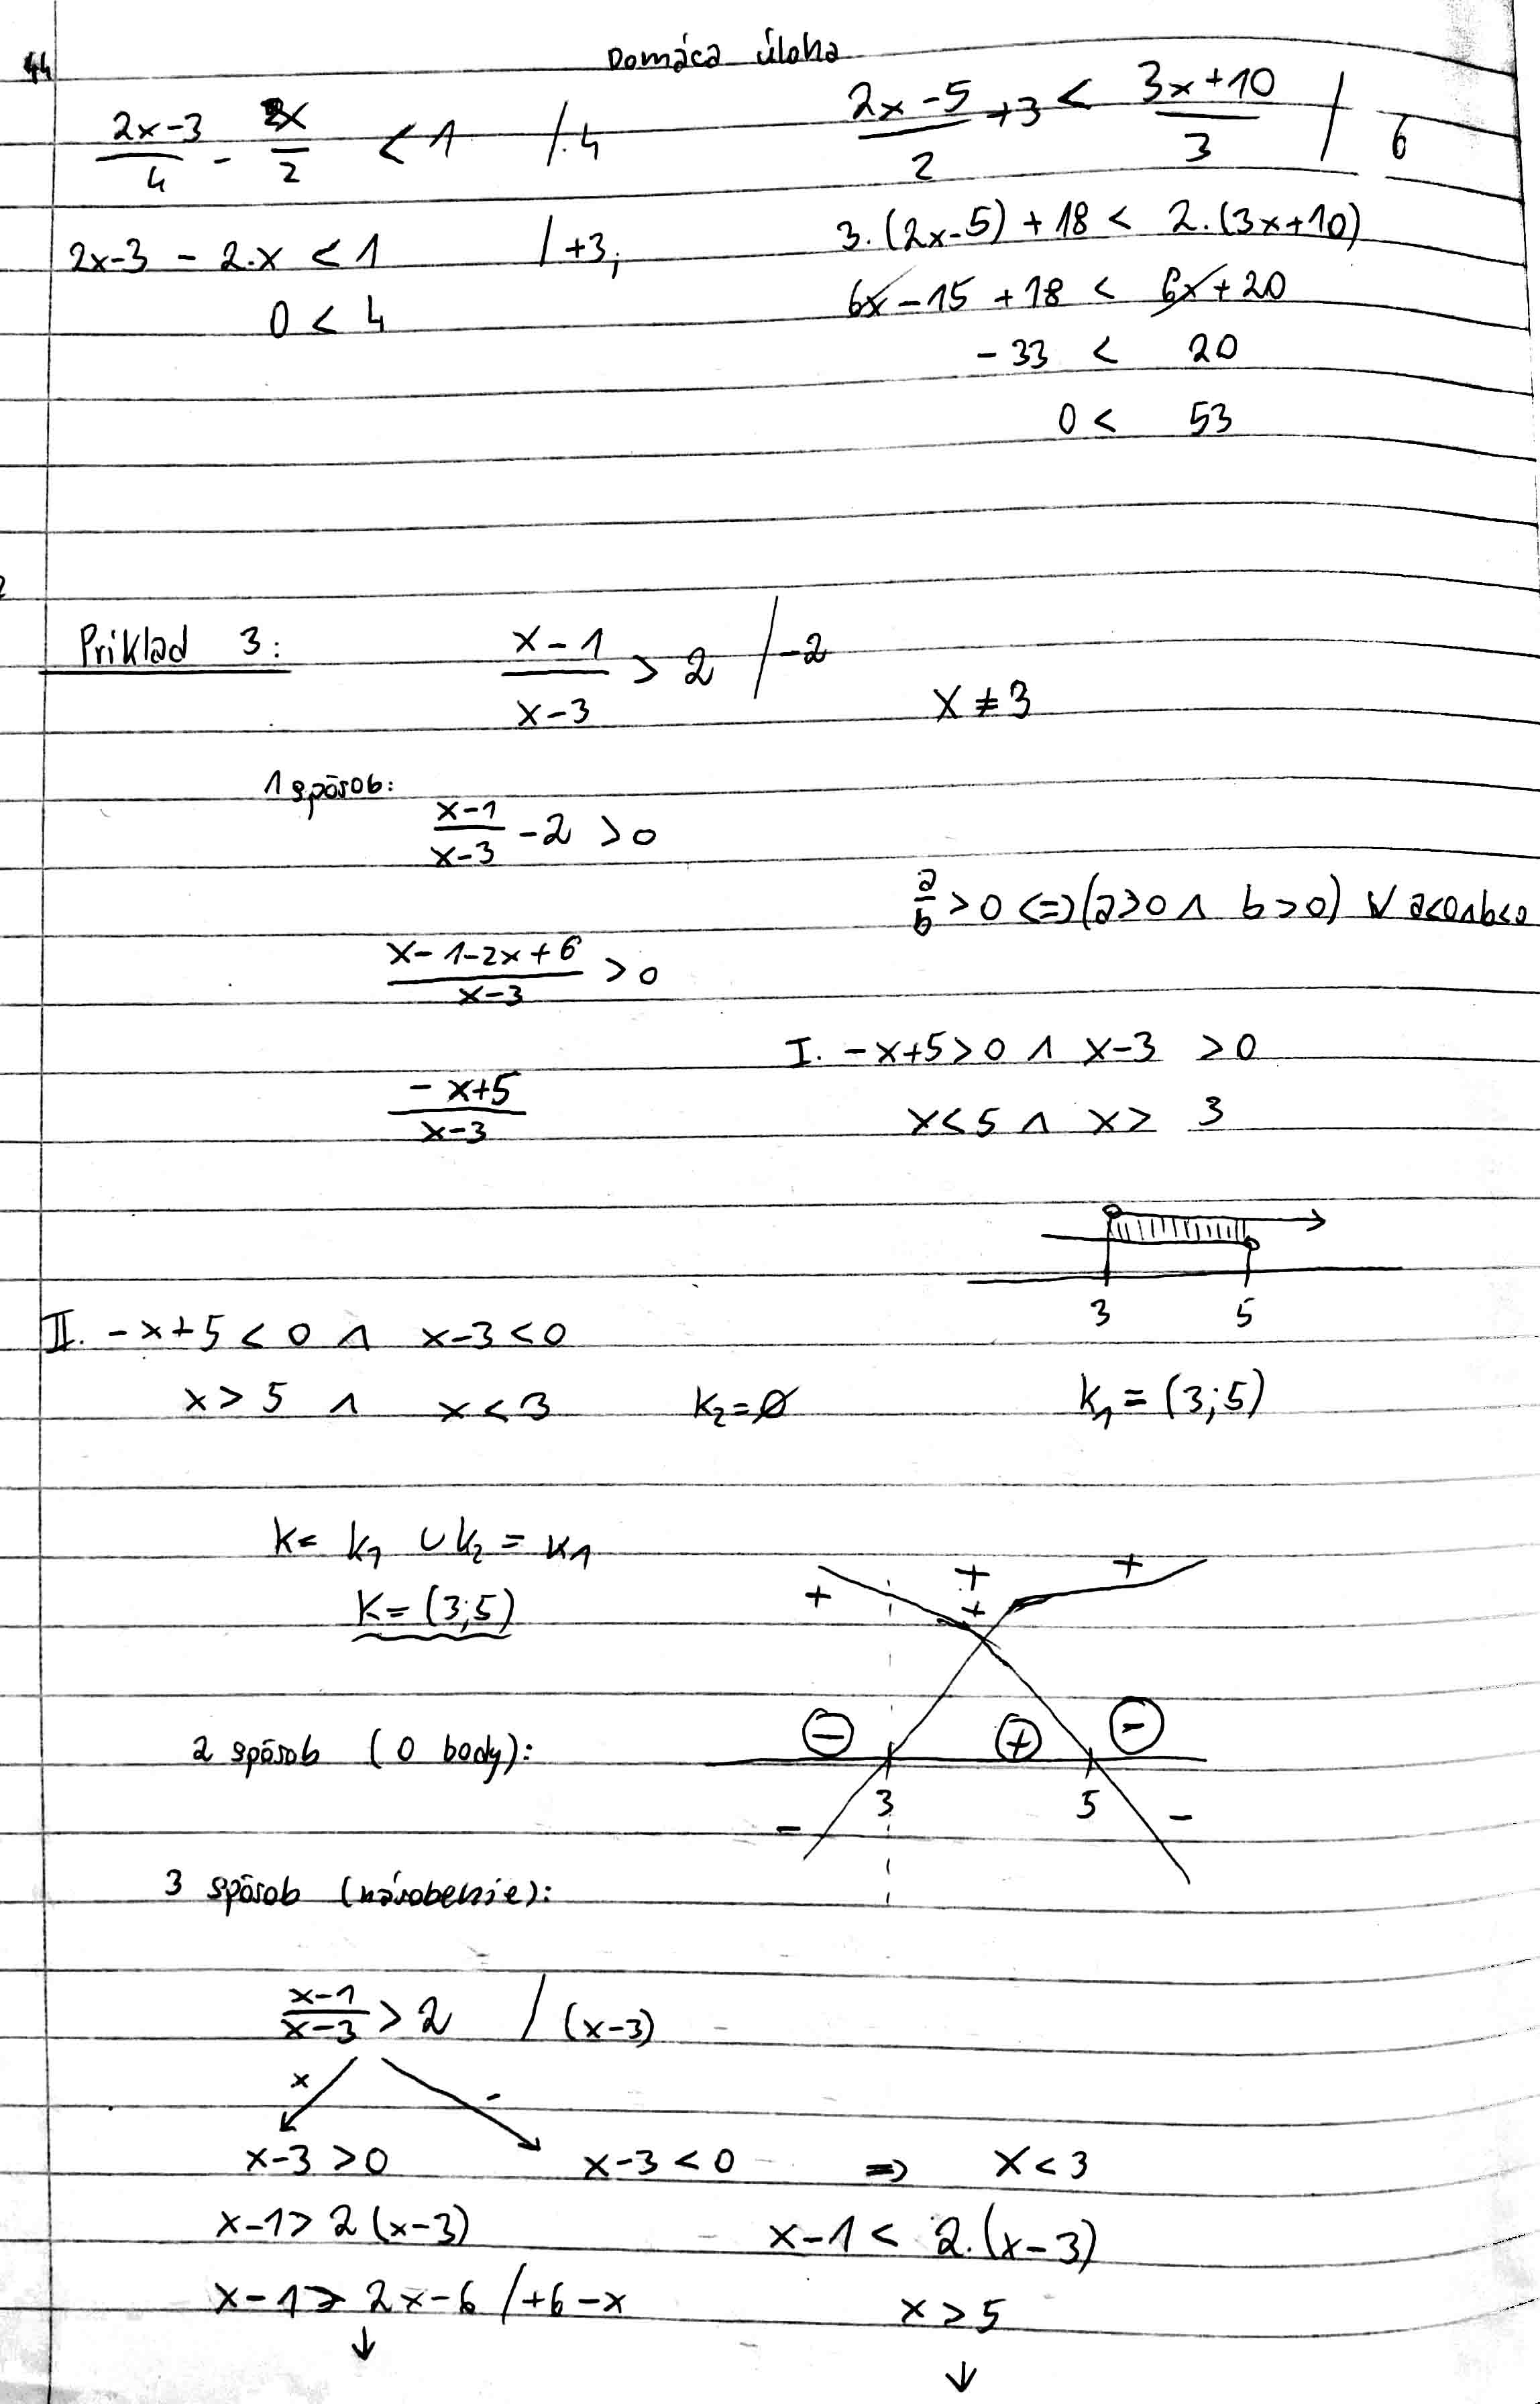 44
Domáca úloha
(2x-3)/4 - x/2 < 1 /.4
2x-3 - 2.x < 1 / +3;
0 < 4
(2x-5)/2 +3 < (3x+10)/3 / 6
3.(2x-5) + 18 < 2.(3x+10)
6x - 15 + 18 < 6x + 20
-33 < 20
0 < 53
Priklad 3: (x-1)/(x-3) > 2 / -2
x ≠ 3
1 spôsob:
(x-1)/(x-3) - 2 > 0
a/b > 0 <=> (a>0 ∧ b>0) ∨ a<0∧b<0
(x-1-2x+6)/(x-3) > 0
(-x+5)/(x-3)
I. -x+5>0 ∧ x-3 >0
x<5 ∧ x> 3
3 5
II. -x+5<0 ∧ x-3<0
x>5 ∧ x<3 K₂=∅ K₁=(3;5)
K= K₁ ∪ K₂ = K₁
K=(3;5)
+ + + +
2 spôsob (0 body):
- + -
3 5
- -
3 spôsob (násobenie):
(x-1)/(x-3) > 2 / (x-3)
x -
x-3>0 x-3<0 => x<3
x-1>2(x-3) x-1<2.(x-3)
x-1>2x-6 /+6-x x>5
↓ ↓